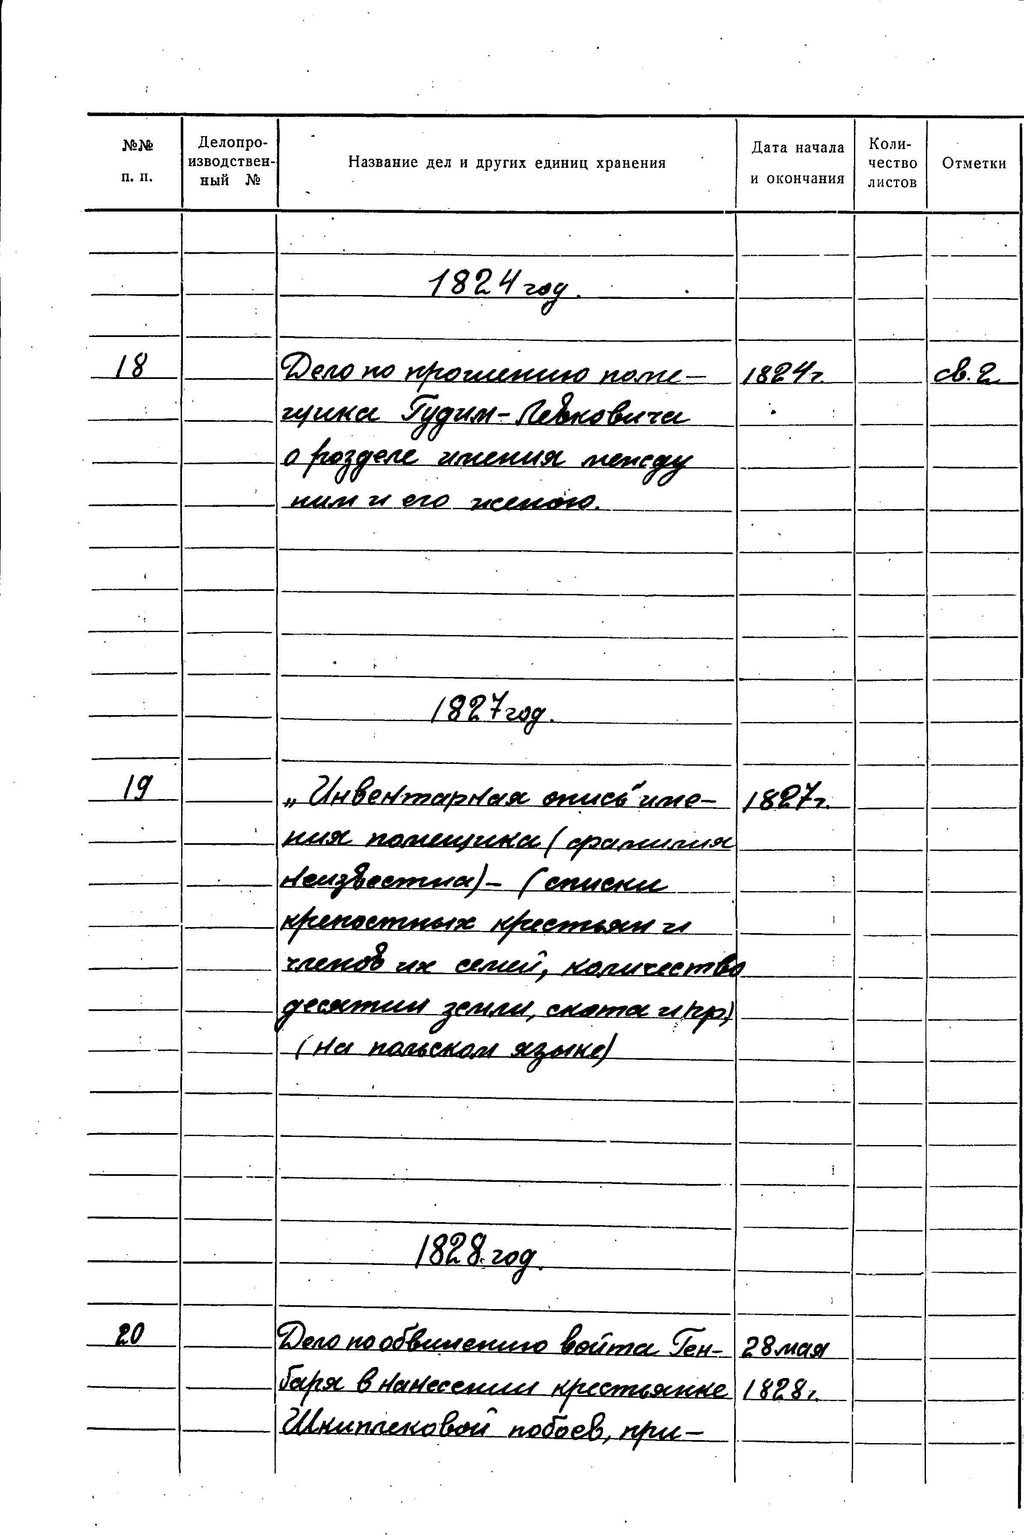 №№ п. п. Делопроизводствен- ный № Название дел и других единиц хранения Дата начала и окончания Коли- чество листов Отметки
1824 год.
18 Дело по прошению поме- 1824г. св. 2.
щика Гудим-Левковича
о розделе имения между
ним и его женою.
1827 год.
19 „Инвентарная опись" име- 1827г.
ния помещика (фамилия
неизвестна) - (списки
крепостных крестьян и
членов их семей, количество
десятин земли, скота и пр.)
(на польском языке)
1828 год.
20 Дело по обвинению войта Ген- 28 мая
баря в нанесении крестьянке 1828г.
Шниплековой побоев, при-